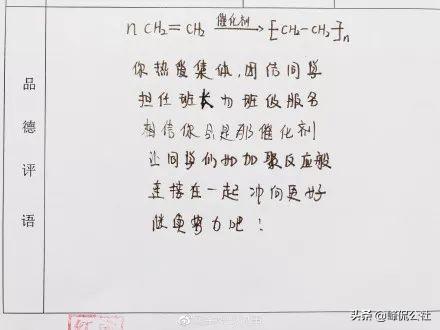 n CH₂=CH₂ 催化剂→ [CH₂-CH₂]n
你热爱集体,团结同学
担任班长为班级服务
相信你会是那催化剂
让同学们如加聚反应般
连接在一起 冲向更好
继续努力吧!
品德评语
头条@峰侃公社